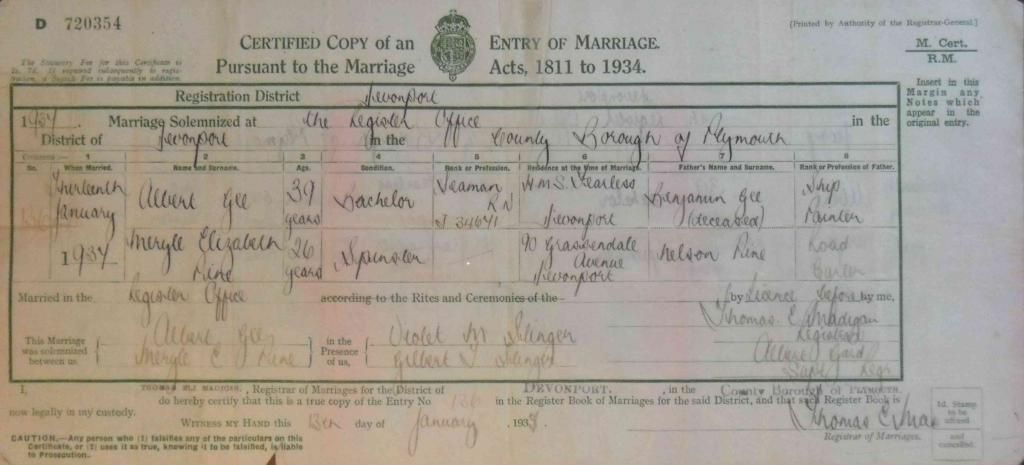 D 720354
[Printed by Authority of the Registrar-General.]
CERTIFIED COPY of an ENTRY OF MARRIAGE.
Pursuant to the Marriage Acts, 1811 to 1934.
M. Cert.
R.M.
The Statutory Fee for this Certificate is
2s. 7d. If required subsequently to regis-
tration, a Search Fee is payable in addition.
Insert in this
Margin any
Notes which
appear in the
original entry.
Registration District Devonport
1937. Marriage Solemnized at the Register Office in the
District of Devonport in the County Borough of Plymouth
Columns :— 1 2 3 4 5 6 7 8
No. When Married. Name and Surname. Age. Condition. Rank or Profession. Residence at the time of Marriage. Father's Name and Surname. Rank or Profession of Father.
Thirteenth January 1937
Albert Gee 39 years Bachelor Seaman R.N J 34641 H.M.S. Fearless Devonport Benjamin Gee (deceased) Ship Painter
Meryle Elizabeth 26 years Spinster 90 Grassendale Avenue Devonport Nelson Road
Married in the Register Office according to the Rites and Ceremonies of the by Licence before by me,
This Marriage was solemnized between us,
Albert Gee
Meryle E
in the Presence of us,
Violet M
Gilbert
Thomas E Madigan
Registrar
Albert Gard
Supt Regr
I, THOMAS ELI MADIGAN, Registrar of Marriages for the District of DEVONPORT, in the County Borough of PLYMOUTH
do hereby certify that this is a true copy of the Entry No 136 in the Register Book of Marriages for the said District, and that such Register Book is
now legally in my custody.
WITNESS MY HAND this 13th day of January, 193
Thomas E Mad
Registrar of Marriages.
1d. Stamp
to be
affixed
and
cancelled.
CAUTION.—Any person who (1) falsifies any of the particulars on this
Certificate, or (2) uses it as true, knowing it to be falsified, is liable
to Prosecution.